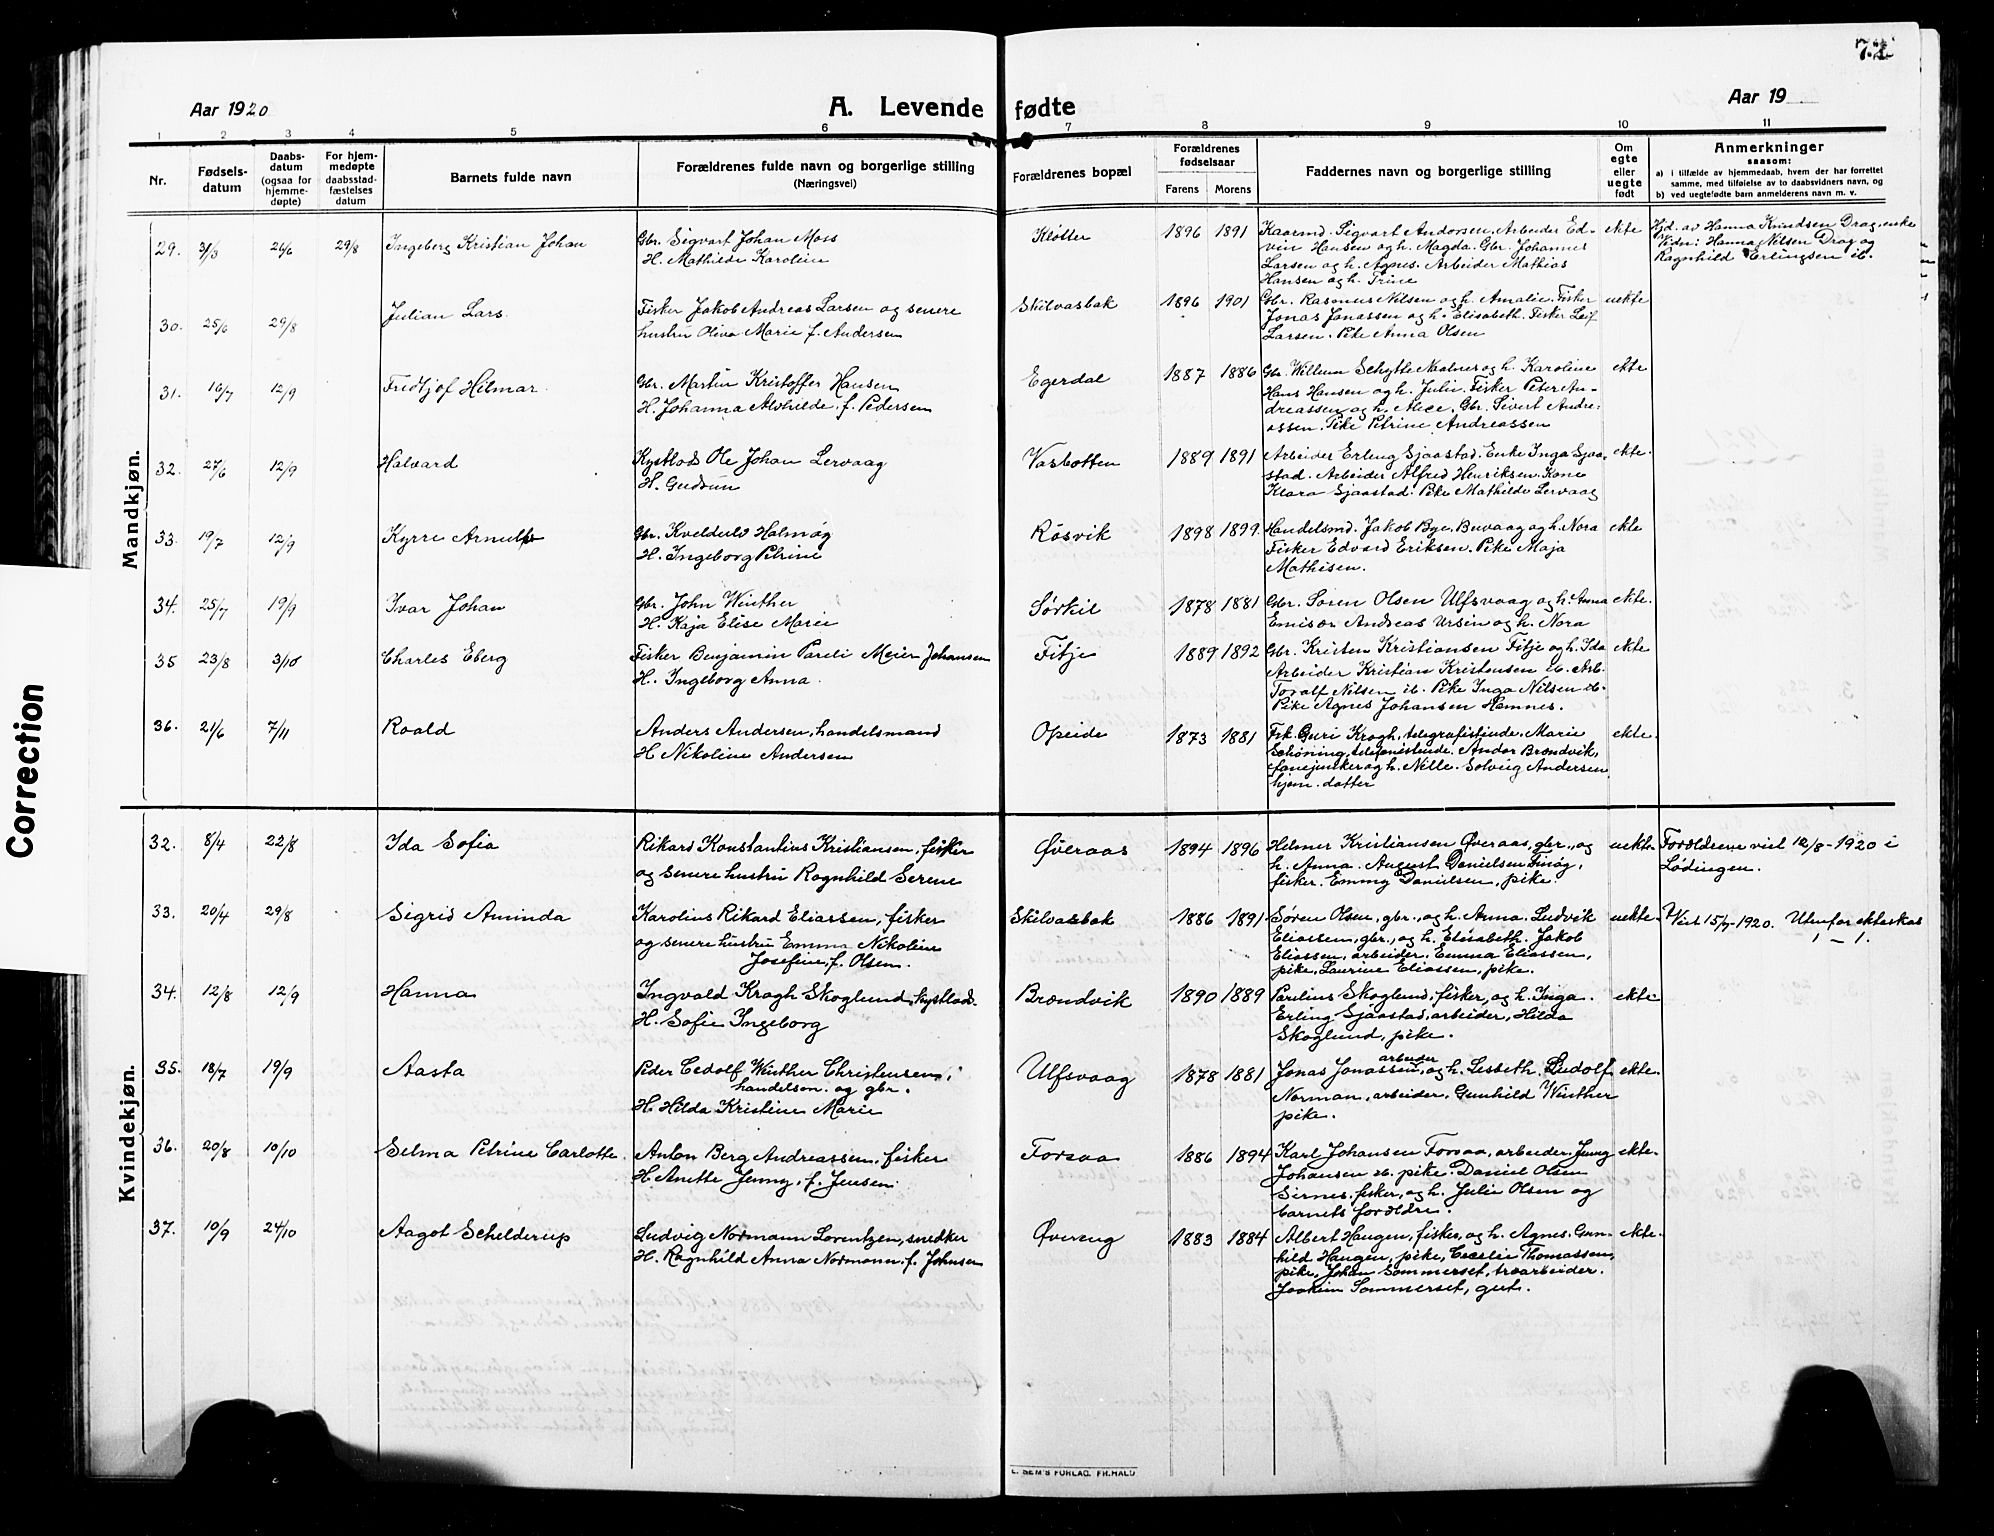 72
Aar 1920
A. Levende fødte
Aar 19
1 2 3 4 5 6 7 8 9 10 11
Nr.
Fødsels-
datum
Daabs-
datum
(ogsaa for
hjemme-
døpte)
For hjem-
medøpte
daabsstad-
fæstelses
datum
Barnets fulde navn
Forældrenes fulde navn og borgerlige stilling
(Næringsvei)
Forældrenes bopæl
Forældrenes
fødselsaar
Farens Morens
Faddernes navn og borgerlige stilling
Om
egte
eller
uegte
født
Anmerkninger
saasom:
a) i tilfælde av hjemmedaab, hvem der har forrettet
samme, med tilføielse av to daabsvidners navn, og
b) ved uegtefødte barn anmelderens navn m. v.
Mandkjøn.
29. 31/3 26/6 29/8 Ingeberg Kristian Johan
Gbr. Sigvart Johan Moss
H. Mathilde Karoline
Kløtter 1896 1891
Kaarmd. Sigvart Andorsen. Arbeider Ed-
vin Hansen og h. Magda. Gbr. Johannes
Larsen og h. Agnes. Arbeider Mathias
Hansen og h. Trine
ekte
Hjd. av Hanna Knudsen Drag, enke
Vidn: Hanna Nilsen Drag og
Ragnhild Erlingsen ib.
30. 25/6 29/8 Julian Lars.
Fisker Jakob Andreas Larsen og senere
hustru Oliva Marie f. Andersen
Skilvasbak 1896 1901
Gbr. Rasmus Nilsen og h. Amalie. Fisker
Jonas Jonassen og h. Elisabeth. Fisker Leif
Larsen. Pike Anna Olsen
uekte
31. 16/7 12/9 Fridtjof Hilmar.
Gbr. Martin Kristoffer Hansen
H. Johanna Alvhilde, f. Pedersen
Egerdal 1887 1886
Gbr. Willum Schytte og h. Karoline
Hans Hansen og h. Julie. Fisker Peter An-
dreassen og h. Alice. Gbr. Sivert Andre:
assen. Pike Petrine Andreassen
ekte
32. 27/6 12/9 Halvard
Kystlods Ole Johan Lervaag
H. Gudrun
Vasbotten 1889 1891
Arbeider Erling Sjaastad. Enke Inga Sjaa-
stad. Arbeider Alfred Henriksen. Kone
Klara Sjaastad. Pike Mathilde Lervaag
ekte.
33. 19/7 12/9 Kyrre
Gbr. Kveldulv Halmøg
H. Ingeborg Petrine
Røsvik 1898 1899
Handelsmd. Jakob Bye, Buvaag og h. Nora
Fisker Edvard Eriksen. Pike Maja
Mathisen.
ekte
34. 25/7 19/9 Ivar Johan
Gbr. John Winther
H. Kaja Elise Marie
Sørkil 1878 1881
Gbr. Søren Olsen Ulfsvaag og h. Anna
Emisær Andreas Ursin og h. Nora
ekte.
35 23/8 3/10 Charles Eberg
Fisker Benjamin Pareli Meier Johansen
H. Ingeborg Anna.
Fitje 1889 1892
Gbr. Kristen Kristiansen Fitje og h. Ida
Arbeider Kristian Kristensen ib. Arb.
Toralf Nilsen ib. Pike Inga Nilsen ib.
Pike Agnes Johansen Hemnes.
ekte
36. 21/6 7/11 Roald
Anders Andersen, handelsmand
H Nikoline Andersen
Opeide 1873 1881
Frk. Guri Krogh, telegrafistinde. Marie
Schøning, telefonistinde. Andor Brændvik,
fanejunker og h. Nille. Solveig Andersen,
hjem. datter
ekte.
Kvindekjøn.
32. 8/4 22/8 Ida Sofia
Rikard Konstantius Kristiansen, fisker
og senere hustru Ragnhild Serene
Øveraas 1894 1896
Helmer Kristiansen Øveraas, gbr., og
h. Anna. August Danielsen Finøg,
fisker. Emmy Danielsen, pike.
uekte.
Forældrene viet 12/8-1920 i
Lødingen.
33. 20/4 29/8 Sigrid Aminda
Karolius Rikard Eliassen, fisker
og senere hustru Emma Nikoline
Josefine, f. Olsen.
Skilvasbak 1886 1891
Søren Olsen, gbr., og h. Anna. Ludvik
Eliassen, gbr., og h. Elisabeth. Jakob
Eliassen, arbeider. Emma Eliassen,
pike, Laurine Eliassen, pike.
uekte.
Viet 1920. Utenfor ekteskap
34. 12/8 12/9 Hanna
Ingvald Kragh Skoglund, kystlods.
H. Sofie Ingeborg
Brændvik 1890 1889
Paulius Skoglund, fisker, og h. Inga.
Erling Sjaastad, arbeider, Hilda
Skoglund, pike.
ekte
35. 18/7 19/9 Aasta
Peder Cedolf Winther Christensen,
handelsm. og gbr.
H. Hilda Kristine Marie
Ulfsvaag 1878 1881
Jonas Jonassen, arbeider og h. Lisbeth. Ludolf
Norman, arbeider. Gunhild Winther
pike.
ekte.
36. 20/8 10/10 Selma Petrine Carlotte.
Anton Berg Andreassen, fisker
H. Anette Jenny, f. Jensen.
Forsaa 1886 1894
Karl Johansen Forsaa, arbeider, Jenny
Johansen ib. pike. Daniel Olsen
Sirnes, fisker, og h. Julie Olsen og
barnets forældre.
ekte.
37. 10/9 24/10 Aagot Schelderup
Ludvig Normann Lorentzen, snedker
H. Ragnhild Anna Normann, f. Johnsen
Øvereng 1883 1884
Albert Haugen, fisker, og h. Agnes. Gun-
hild Haugen, pike, Cecelie Thomassen,
pike, Johan Sommerset, træarbeider.
Joakim Sommerset, gut.
ekte.
SEM'S FORLAG. FR.HALD
Correction